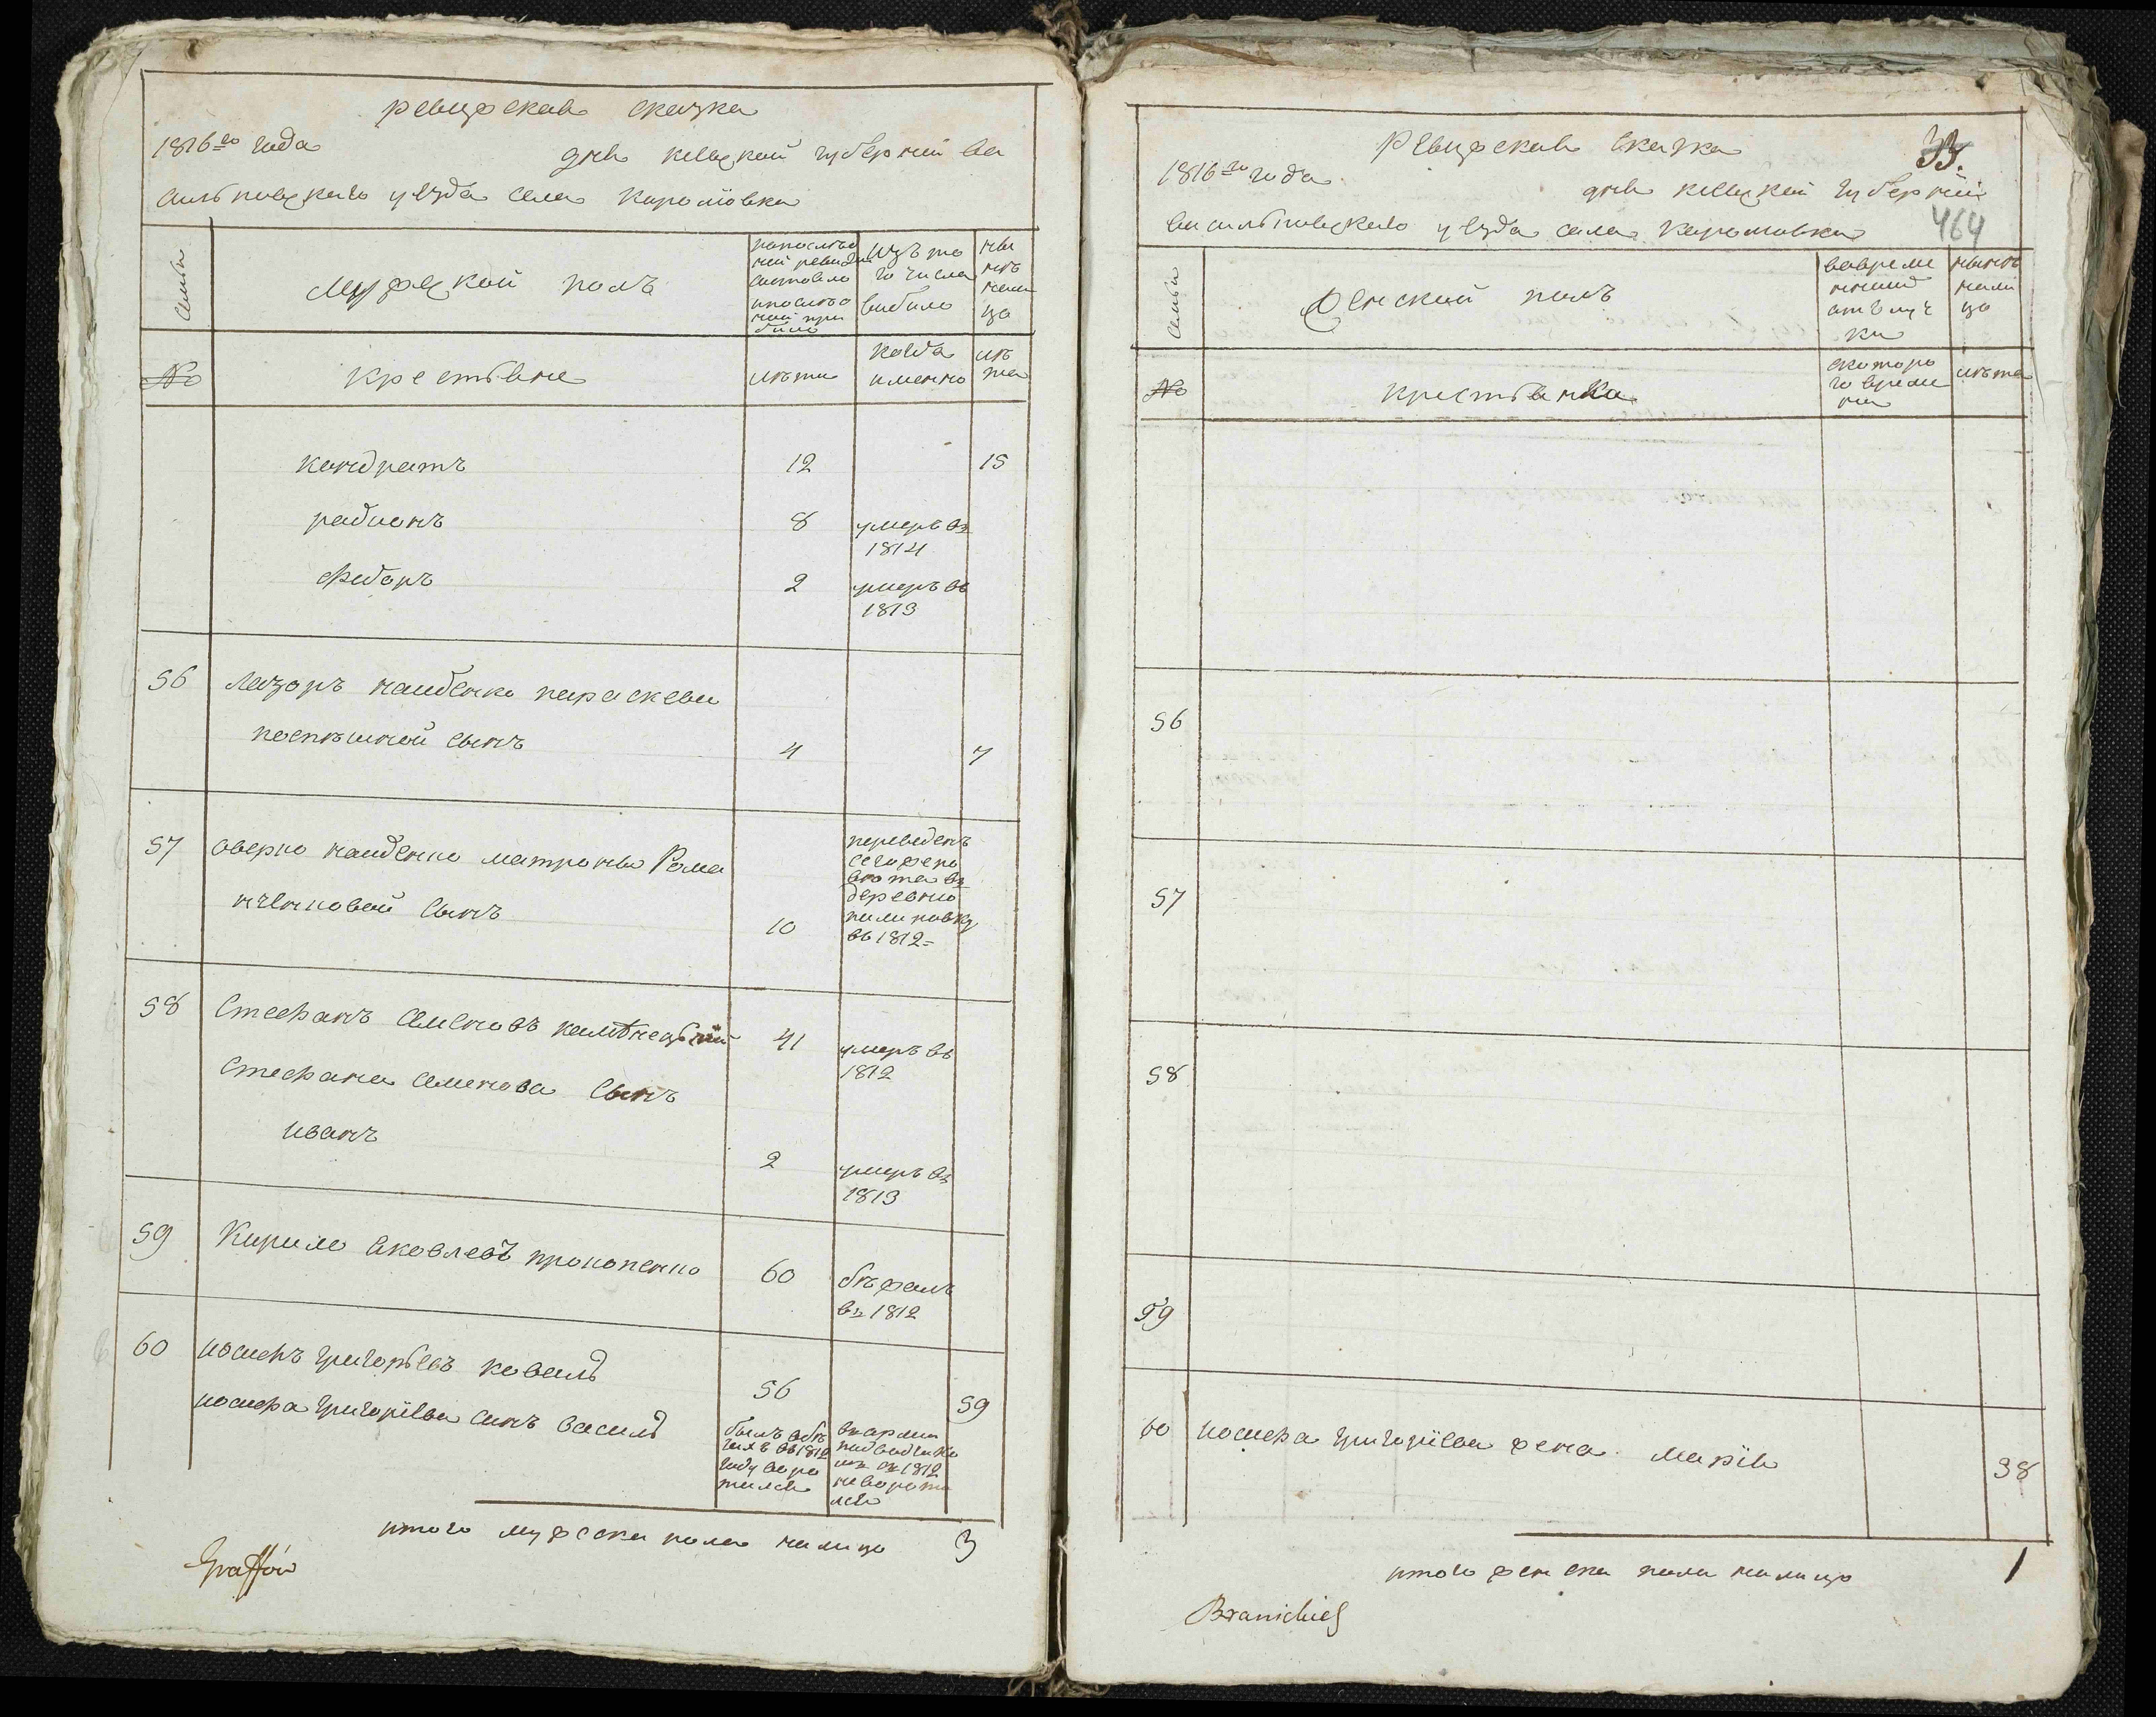 ревизская сказка
1816го года дня кіевской губерніи ва
сильковскаго уезда села Каромовка
семьи
Мужеской полъ
попослѣд
ней ревизіи
состояло
и послѣ о
ной при
было
изъ то
го числа
выбыло
ны
нѣ
нали
цо
№
крестьяне
лѣта
когда
именно
лѣ
та
кондратъ 12 15
радионъ 8 умеръ въ
1814
Федоръ 2 умеръ въ
1813
56 Лазоръ найденко параскеви
поспѣшной сынъ 4 7
57 оверко найденко матроны Рома
нченковой сынъ 10
переведенъ
сего жепо
вѣта въ
деревню
пилиповку
въ 1812
58 Стефанъ семеновъ камѣнецькій 41 умеръ въ
1812
Стефана семенова сынъ
иванъ 2 умеръ въ
1813
59 Кирило яковлевъ прокопенко 60 бѣжалъ
въ 1812
60 иосифъ григорьевъ коваль 56 59
иосифа григоріева синъ василь
былъ вбѣ
гахъ въ 1812
году воро
тился
варміи
подводчико
мъ въ 1812
неворотил
ся
итого мужеска пола налицо 3
Graffów
Ревизская сказка
33.
1816го года дня кіевской губерніи
васильковскаго уезда села Каромовка
464
семьи
Женской полъ
вовреме
нной
отълуч
ки
нынѣ
нали
цо
№
крестьянки
скоторо
го време
ни
лѣта
56
57
58
59
60 иосифа григоріева жена Марія 38
итого женска пола налицо 1
Branickich